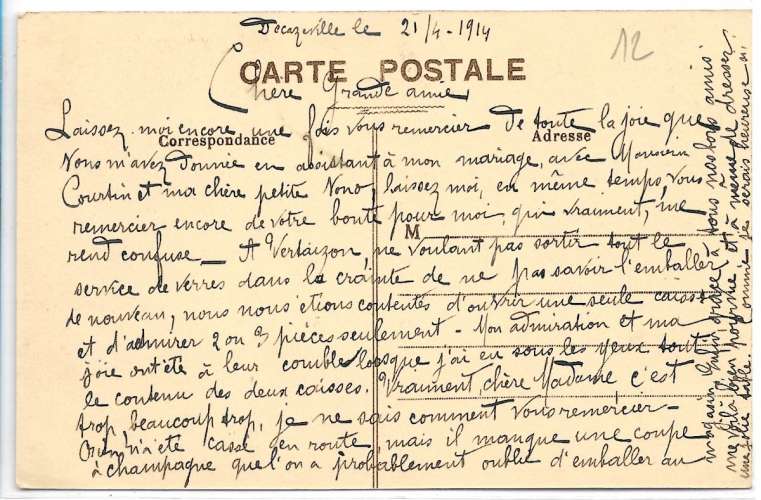 Decazeville le 21/4-1914
12
CARTE POSTALE
Chère Grande amie,
Correspondance
Adresse
M
Laissez moi encore une fois vous remercier de toute la joie que
Vous m'avez donnée en assistant à mon mariage, avec Monsieur
Courtin et ma chère petite Nono, laissez moi, en même temps vous
remercier encore de votre bonté pour moi, qui vraiment, me
rend confuse_ A Vertaizon, ne voulant pas sortir tout le
service de verres dans la crainte de ne pas savoir l'emballer
de nouveau, nous nous étions contentés d'ouvrir une seule caisse
et d'admirer 2 ou 3 pièces seulement - Mon admiration et ma
joie ont été à leur comble lorsque j'ai eu sous les yeux tout
le contenu des deux caisses. Vraiment, chère Madame c'est
trop, beaucoup trop, je ne sais comment vous remercier -
Rien n'a été cassé en route, mais il manque une coupe
à champagne que l'on a probablement oublié d'emballer au
magasin. Enfin, grâce à tous nos bons amis
me voilà bien pourvue et à même de dresser
une jolie table. Comme je serais heureuse si